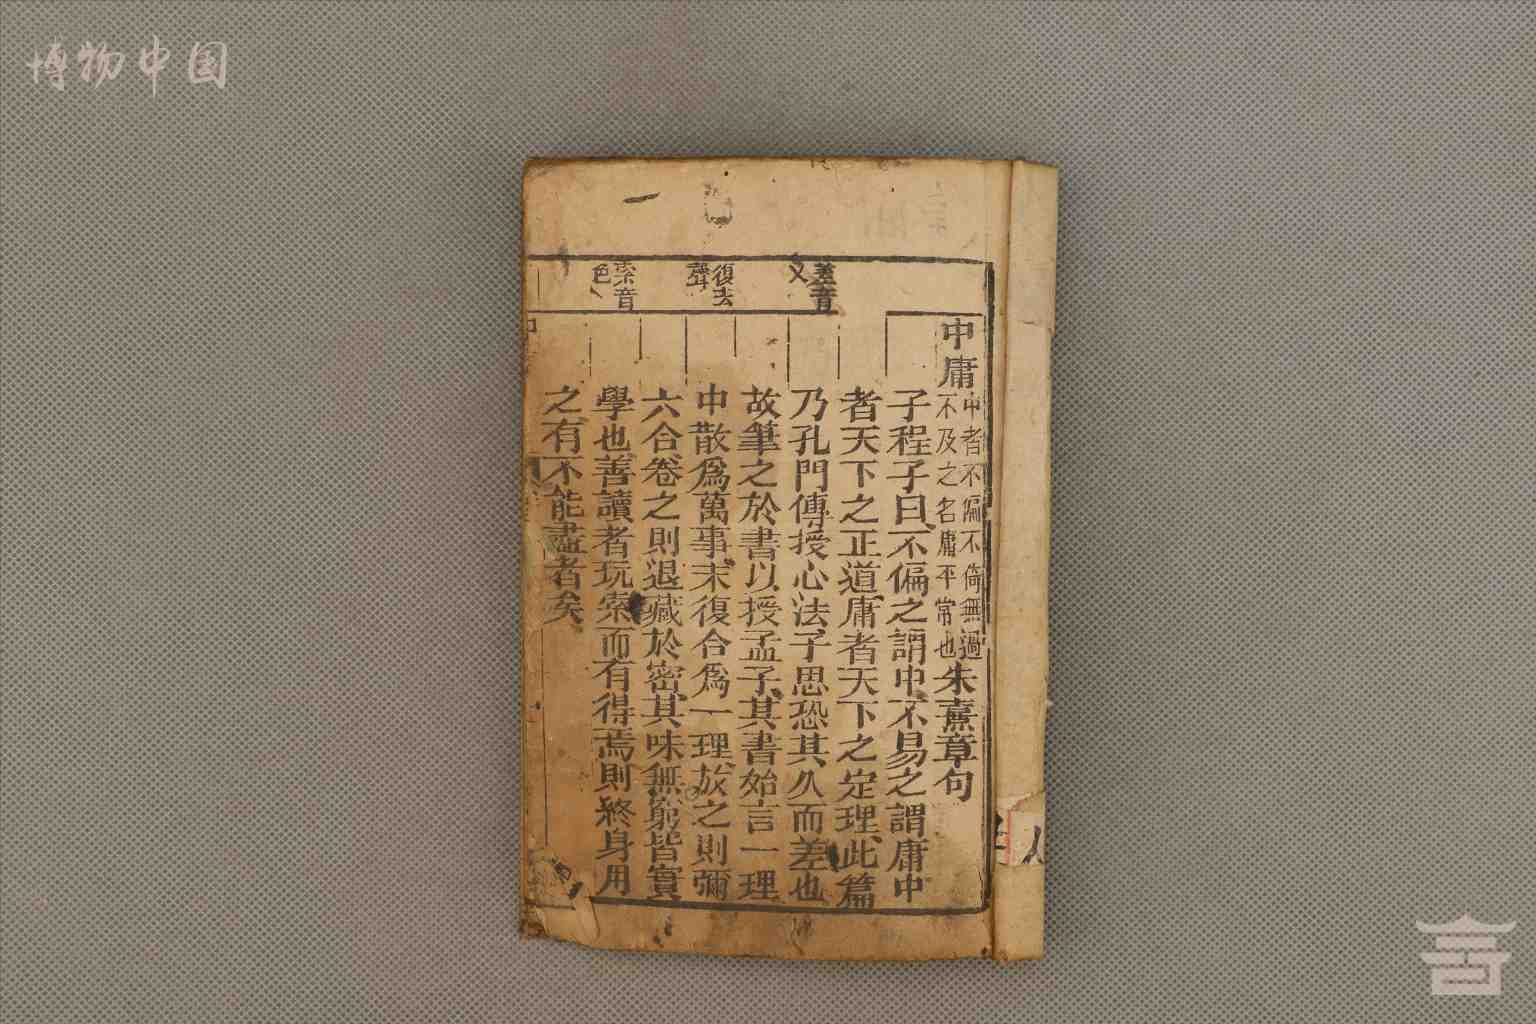 博物中国
差音叉
復去聲
索音色
中庸中者不偏不倚無過不及之名庸平常也朱熹章句
子程子曰不偏之謂中不易之謂庸中
者天下之正道庸者天下之定理此篇
乃孔門傳授心法子思恐其久而差也
故筆之於書以授孟子其書始言一理
中散爲萬事末復合爲一理放之則彌
六合卷之則退藏於密其味無窮皆實
學也善讀者玩索而有得焉則終身用
之有不能盡者矣